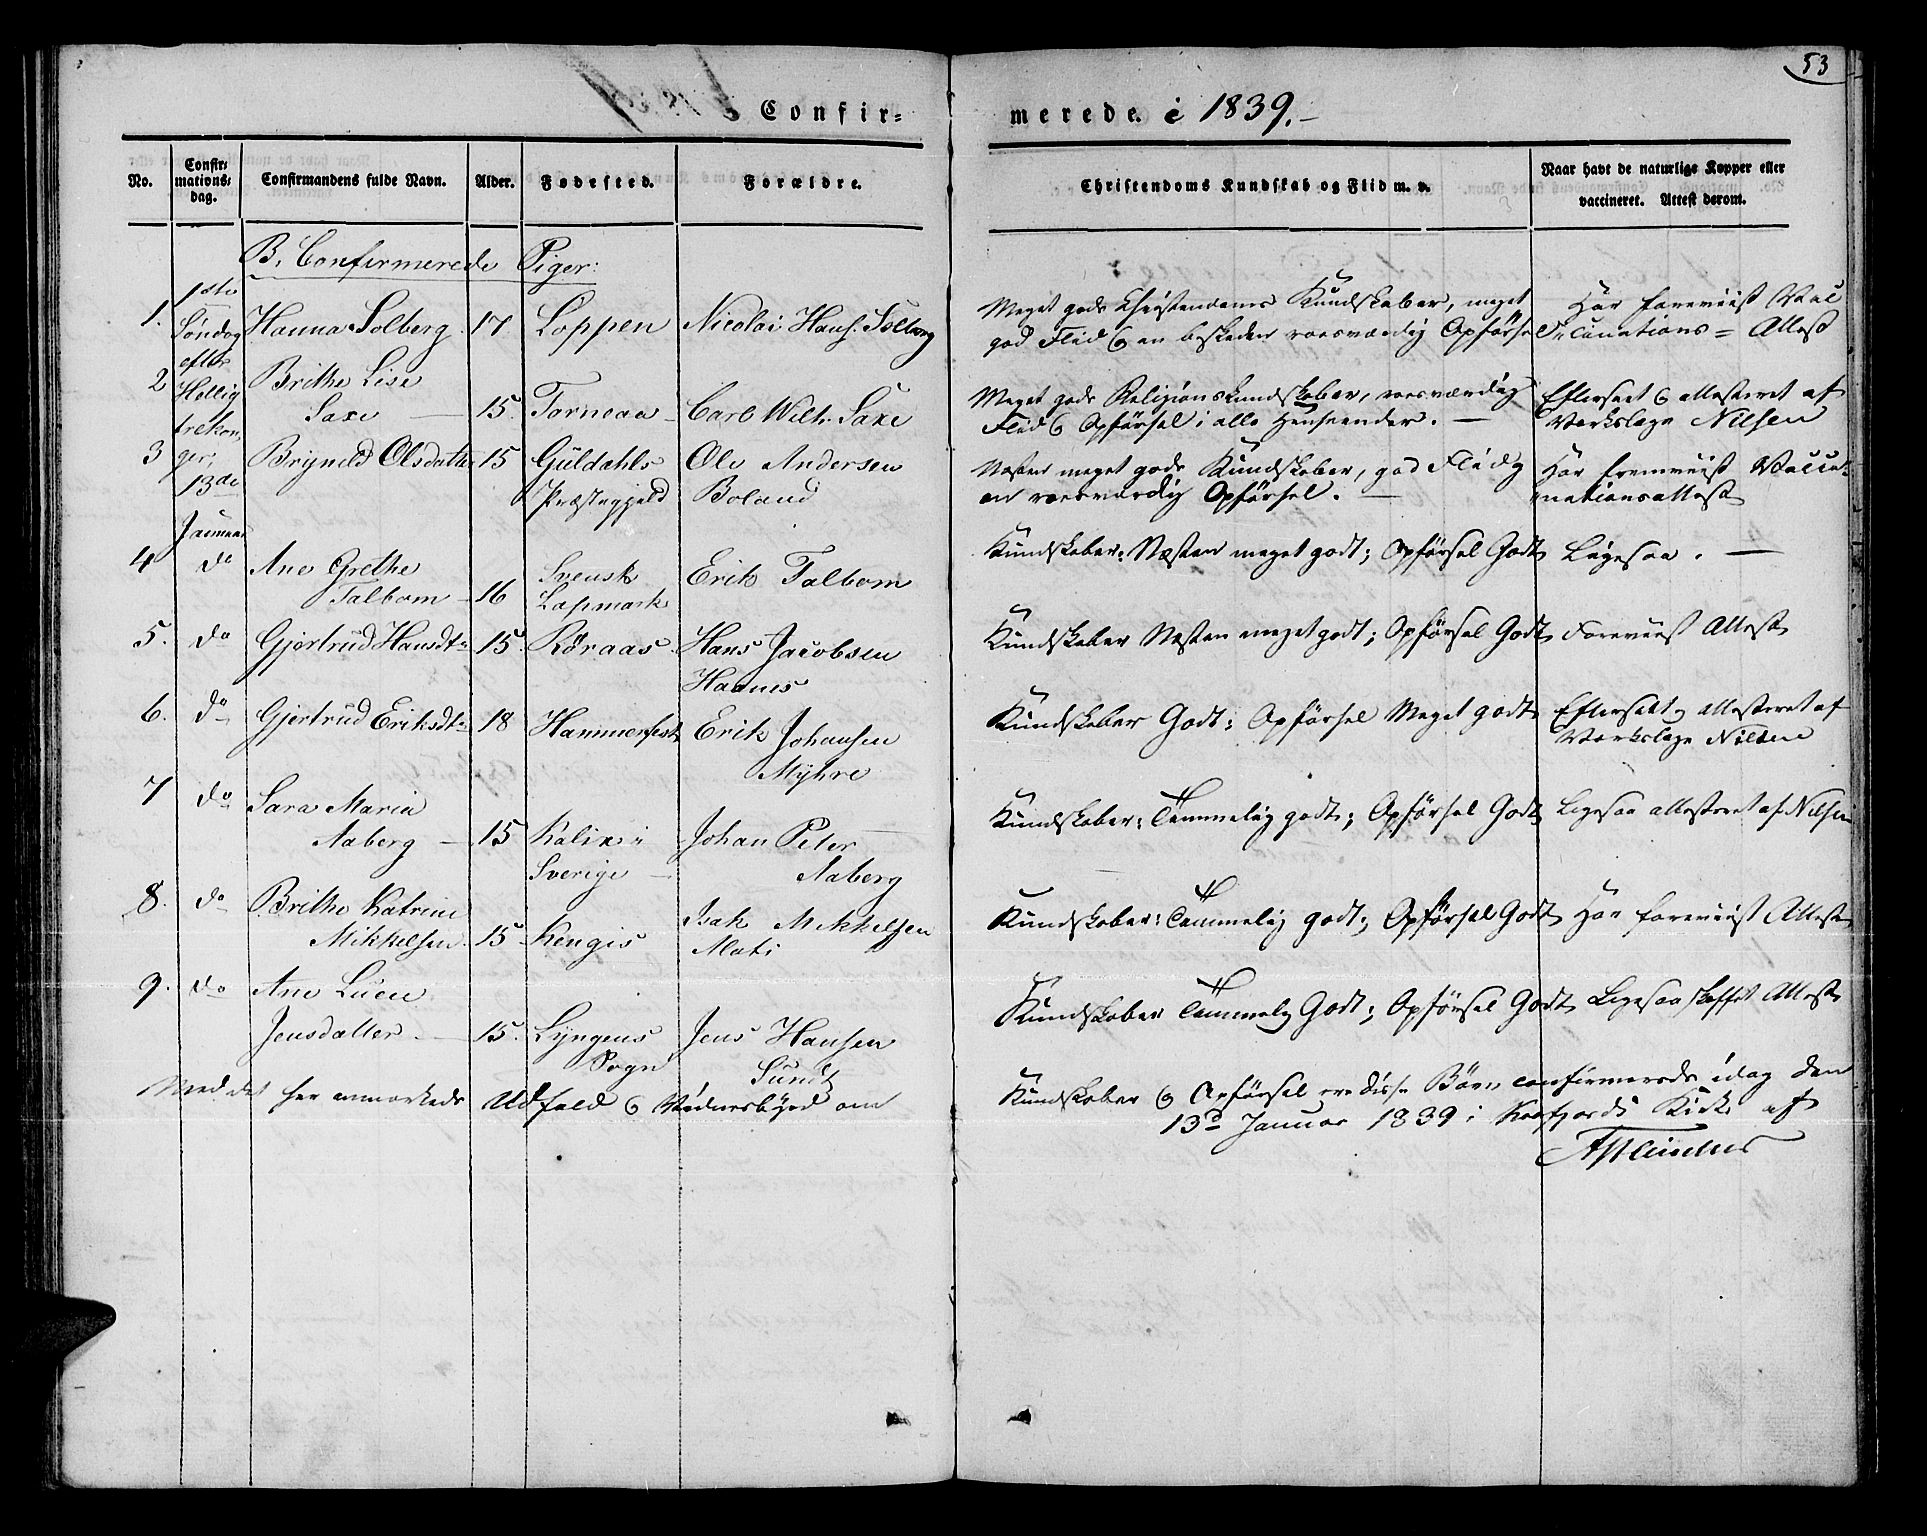 53
Confir-
merede. i 1839.-
No.
Confir-
mations-
dag.
Confirmandens fulde Navn.
Alder.
Fødested.
Forældre.
Christendoms Kundskab og Flid m. v.
Naar havt de naturlige Kopper eller
vaccineret. Attest derom.
B. Confirmerede Piger:
1. 1ste Søndag Hanna Solberg. 17. Loppen Nicolai Hans. Solberg
Meget gode Christendoms Kundskaber, meget
god Flid og en beskeden roesværdig Opførsel
Har foreviist Vac
cinations= Attest
efter
Hellig
trekon
ger,
13de
Januar
2 Brithe Lise
Saxe 15. Torneaa Carl Wilh. Saxe
Meget gode Religionskundskaber, roesværdig
Flid og Opførsel i alle Henseender. —
Efterseet og attesteret af
Værkslæge Nilsen
3 Brynild Olsdatter 15 Guldahls Ole Andersen
Præstegjeld Boland
Næsten meget gode Kundskaber, god Flid og
en roesværdig Opførsel. —
Har fremviist Vacci-
nationsattest
4 do Ane Grethe
Talbom 16 Svensk
Lapmark Erik Talbom
Kundskaber: Næsten meget godt; Opførsel Godt
Ligesaa. —
5. do Gjertrud Hansdtr 15. Røraas. Hans Jacobsen
Haanes
Kundskaber Næsten meget godt; Opførsel Godt
Foreviist Attest
6. do Gjertrud Eriksdtr 18 Hammerfest Erik Johansen
Myhre
Kundskaber Godt; Opførsel Meget godt
Efterseet og attesteret af
Værkslæge Nilsen
7 do Sara Maria
Aaberg — 15 Kalix i Johan Peter
Sverige — Aaberg
Kundskaber: Temmelig godt; Opførsel Godt
Ligesaa attesteret af Nilsen
8. do Brithe Katrine
Mikkelsen. 15 Kengis Isak Mikkelsen
Mati
Kundskaber: Temmelig godt; Opførsel Godt
Har foreviist Attest
9. do Ane Luen
Jensdatter. — 15. Lyngens Jens Hansen
Sogn Sundt
Kundskaber Temmelig Godt; Opførsel Godt
Ligesaa skaffet Attest
Med det her anmærkede Udfald og Vidnesbyrd om
Kundskaber og Opførsel ere disse Børn confirmerede idag den
13d Januar 1839 i Kaafjords Kirke af